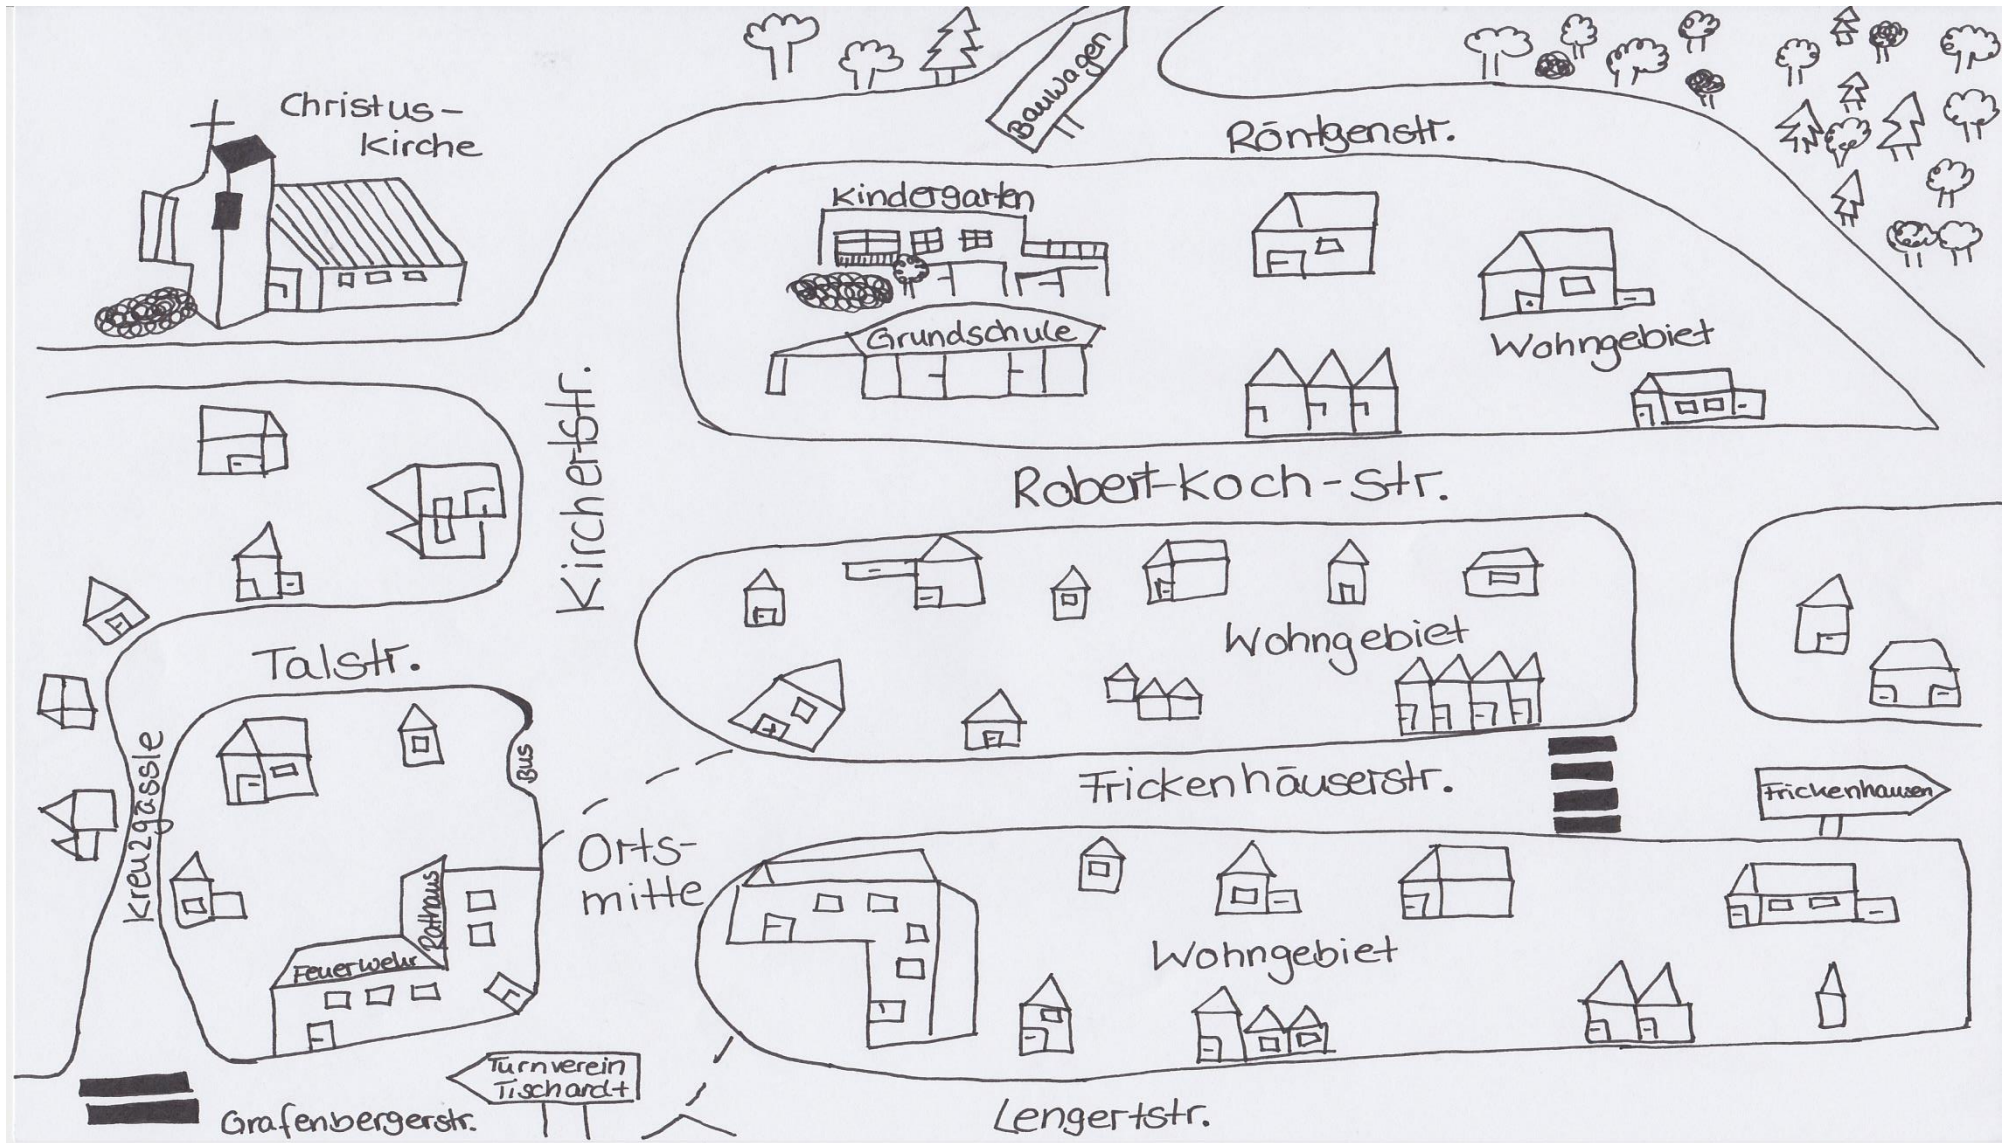 Christus-
Kirche
Bauwagen
Röntgenstr.
Kindergarten
Grundschule
Wohngebiet
Kirchertstr.
Robert-Koch-Str.
Talstr.
Wohngebiet
Kreuzgässle
Bus
Frickenhäuserstr.
Frickenhausen
Orts-
mitte
Rathaus
Feuerwehr
Wohngebiet
Turnverein
Tischardt
Grafenbergerstr.
Lengertstr.